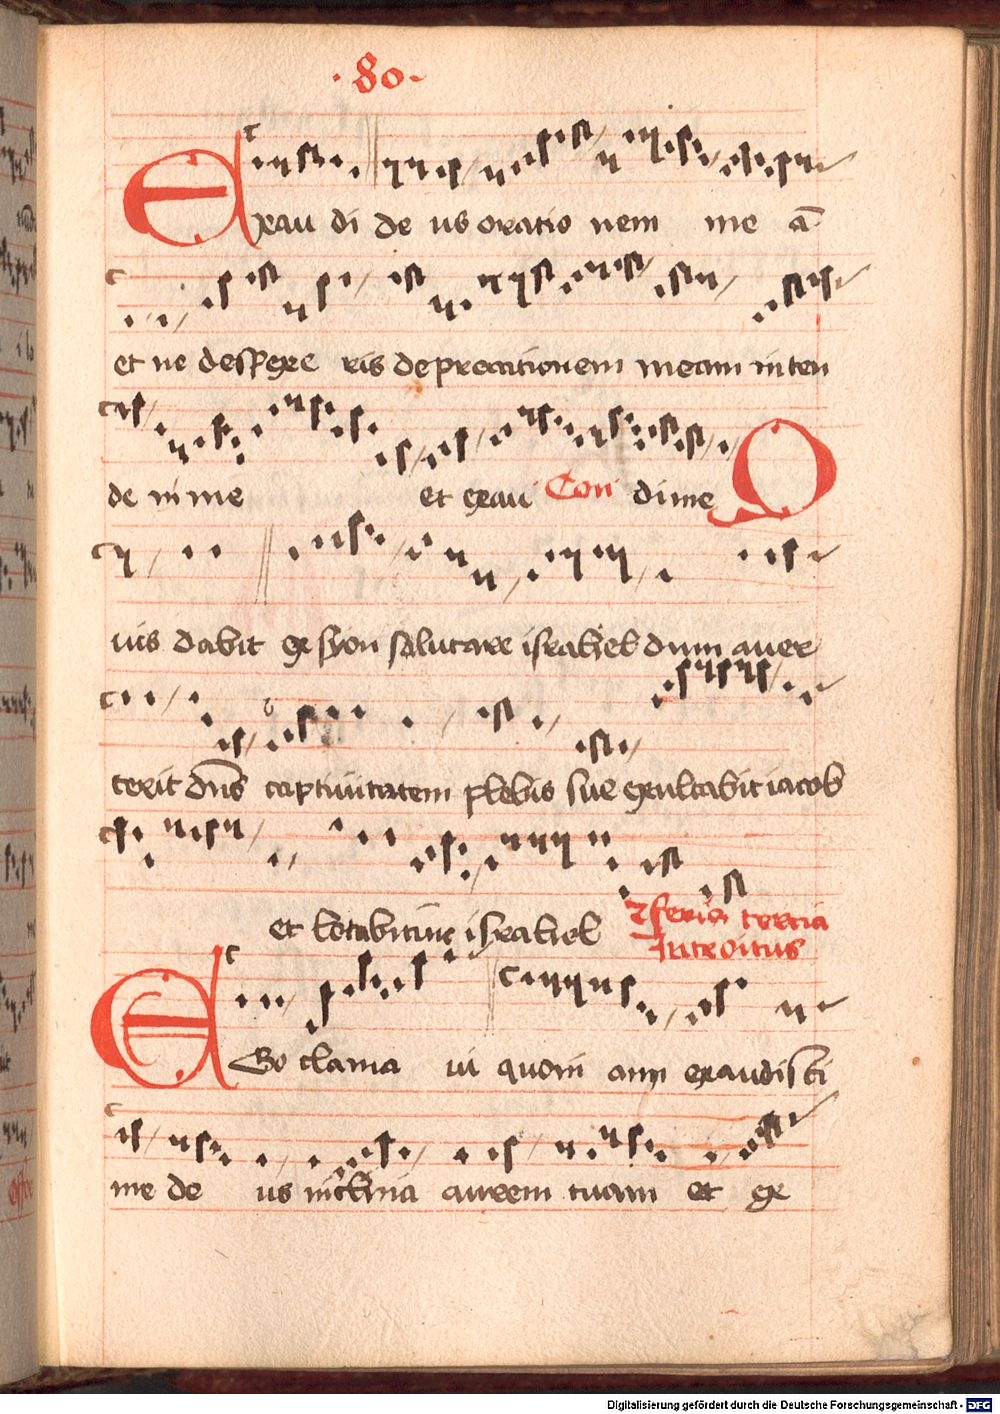 ·80·
Exau di de us oratio nem me a
et ne despexe ris deprecationem meam inten
de in me et exau Con di me Q
uis dabit ex syon salutare israhel dum auer
terit dns captiuitatem plebis sue exultabit iacob
et letabitur israhel feria tercia
Introitus
EGo clama ui quoni am exaudisti
me de us inclina aurem tuam et ex
Digitalisierung gefördert durch die Deutsche Forschungsgemeinschaft - DFG